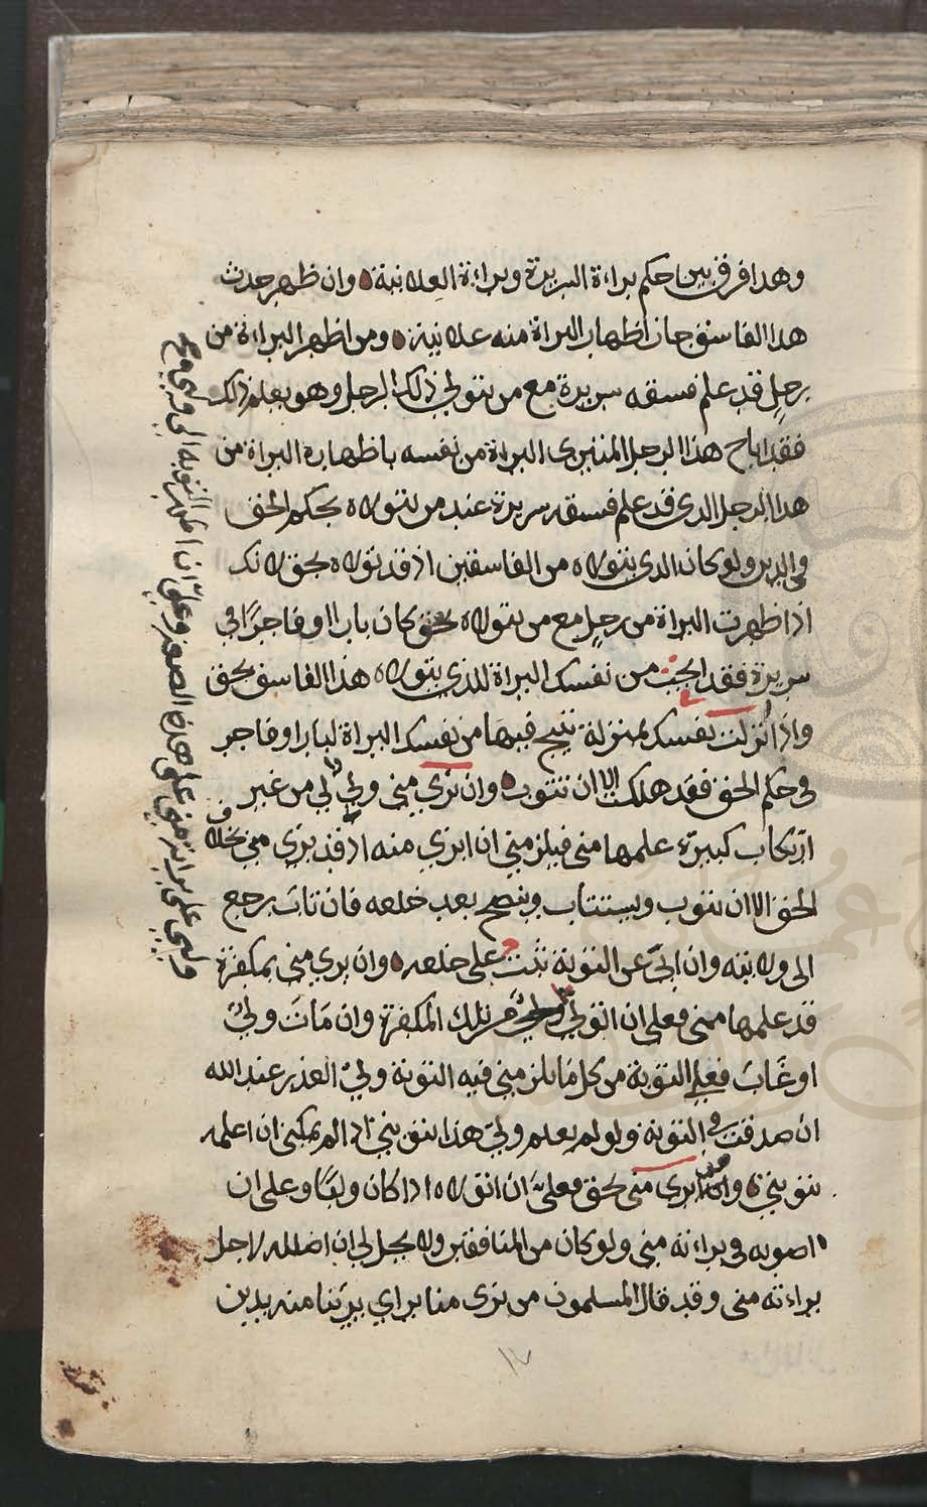 وهذا فرق بين حكم براءة السريرة وبراءة العلانية وان ظهر حدث
هذا الفاسق جاز اظهار البراة منه علانية ومن اظهر البراءة من
رجل قد علم فسقه سريرة مع من يتولى ذلك الرجل وهو يعلم ذلك
فقد اباح هذا الرجل المتبرى البراة من نفسه باظهاره البراة من
هذا الرجل الذى قد علم فسقه سريرة عند من يتولاه بحكم الحق
في الدين ولو كان الذى يتولاه من الفاسقين اذ قد تولاه بحق لانك
اذا ظهرت البراة من رجل مع من يتولاه بحق كان بارا او فاجرا في
سريرة فقد ابحت من نفسك البراة للذي يتولاه هذا الفاسق بحق
واذا انزلت نفسك بمنزلة تبيح فيها من نفسك البراة لبار او فاجر
في حكم الحق فقد هلكت الا ان تتوب وان بري مني ولي لي من غير
ارتكاب كبيرة علمها مني فيلزمني ان ابري منه اذ قد بري مني بخلاف
الحق الا ان يتوب ويستتاب وينصح بعد خلعه فان تاب رجع
الى ولايته وان ابى عن التوبة ثبت على خلعه وان بري مني بمكفرة
قد علمها مني فعلي ان اتوب من تلك المكفرة وان مات وليي
او غاب فعلي التوبة من كل ما يلزمني فيه التوبة ولي العذر عند الله
ان صدقت في التوبة ولو لم يعلم وليي هذا بتوبتي اذا لم يمكني ان اعلمه
بتوبتي وان بري مني بحق فعلي ان اتولاه اذا كان وليا وعلي ان
اصوبه في براءته مني ولو كان من المنافقين ولا يحل لي ان اضلله لاجل
براءته مني وقد قال المسلمون من برى منا براي برئنا منه بدين